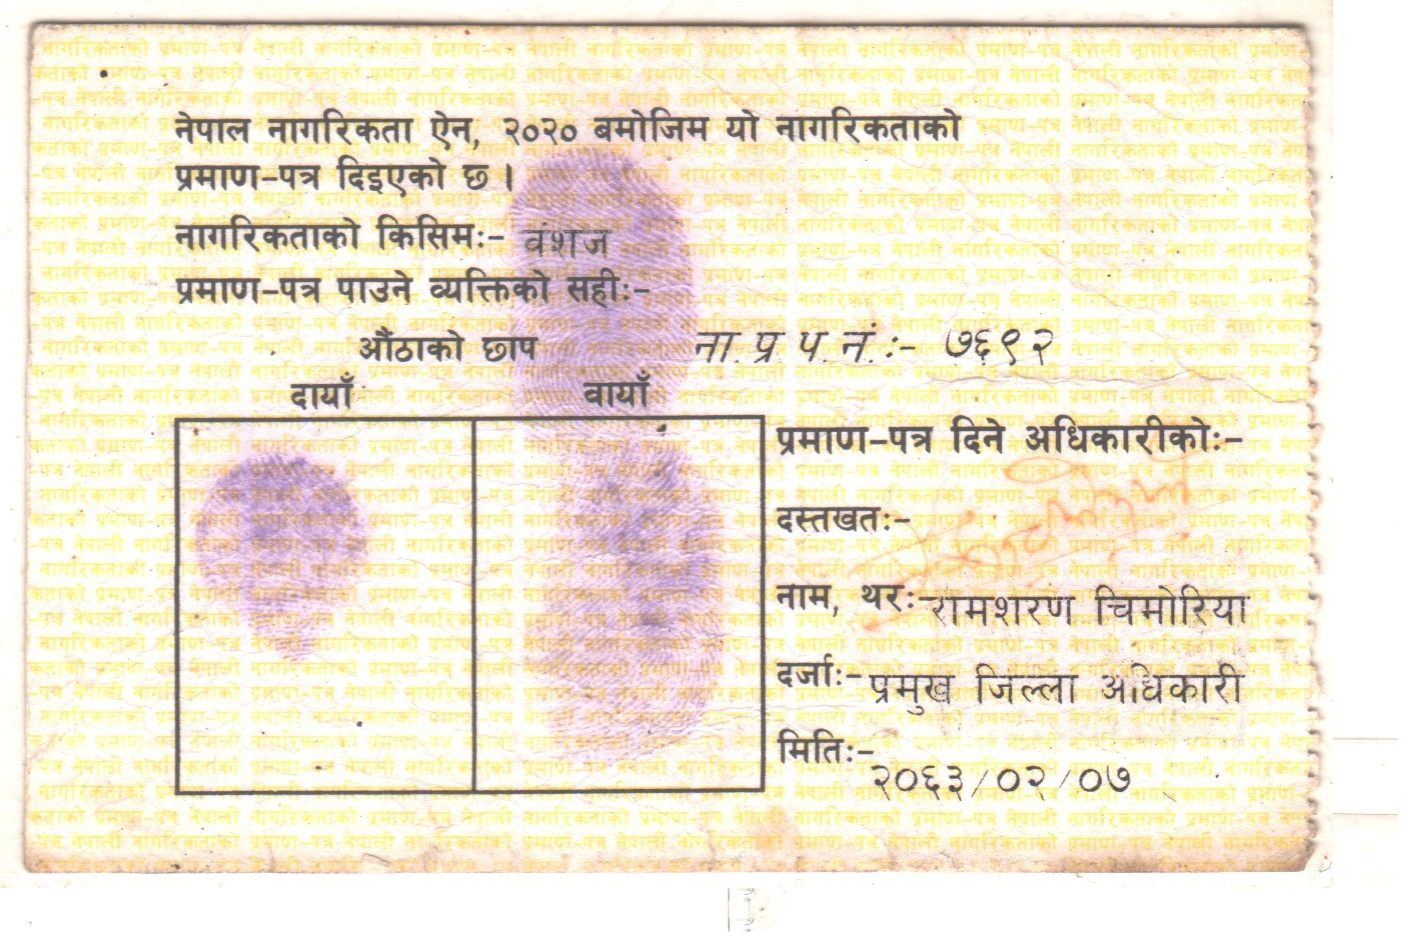 नेपाल नागरिकता ऐन, २०२० बमोजिम यो नागरिकताको
प्रमाण-पत्र दिइएको छ।
नागरिकताको किसिमः- वंशज
प्रमाण-पत्र पाउने व्यक्तिको सहीः-
औंठाको छाप
ना. प्र. प. नं. :- ७६९२
दायाँ
वायाँ
प्रमाण-पत्र दिने अधिकारीकोः-
दस्तखतः-
नाम, थरः- रामशरण चिमोरिया
दर्जाः- प्रमुख जिल्ला अधिकारी
मितिः- २०६३/०२/०७